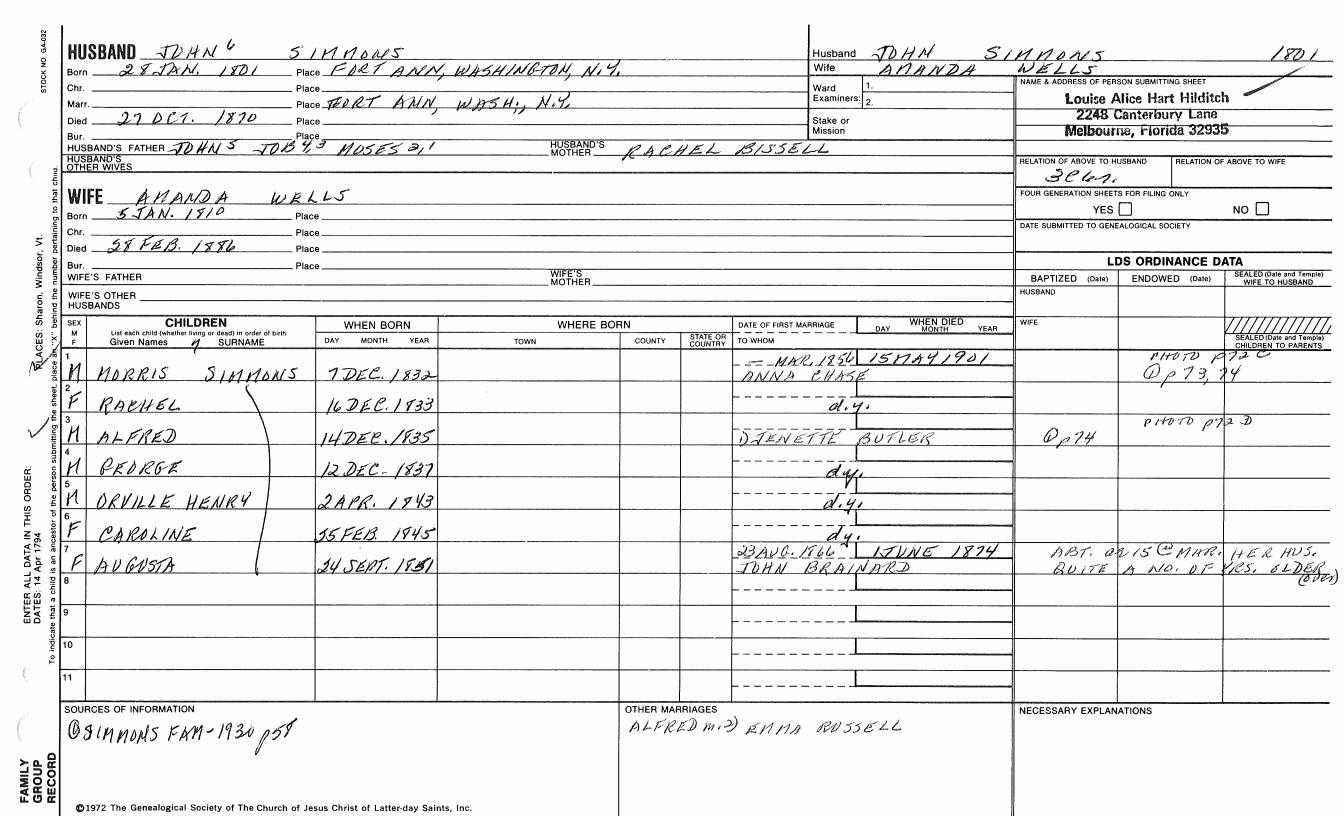 STOCK NO. GA-032
HUSBAND JOHN 6 SIMMONS
Born 28 JAN. 1801 Place FORT ANN, WASHINGTON, N.Y.
Chr. Place
Marr. Place FORT ANN, WASH., N.Y.
Died 27 OCT. 1870 Place
Bur. Place
HUSBAND'S FATHER JOHN 5 JOB 4,3 MOSES 2,1 HUSBAND'S MOTHER RACHEL BISSELL
HUSBAND'S OTHER WIVES
Husband JOHN SIMMONS 1801
Wife AMANDA WELLS
Ward Examiners: 1. 2.
Stake or Mission
NAME & ADDRESS OF PERSON SUBMITTING SHEET
Louise Alice Hart Hilditch
2248 Canterbury Lane
Melbourne, Florida 32935
RELATION OF ABOVE TO HUSBAND RELATION OF ABOVE TO WIFE
FOUR GENERATION SHEETS FOR FILING ONLY
YES NO
DATE SUBMITTED TO GENEALOGICAL SOCIETY
WIFE AMANDA WELLS
Born 5 JAN. 1810 Place
Chr. Place
Died 28 FEB. 1886 Place
Bur. Place
WIFE'S FATHER WIFE'S MOTHER
WIFE'S OTHER HUSBANDS
LDS ORDINANCE DATA
BAPTIZED (Date) ENDOWED (Date) SEALED (Date and Temple) WIFE TO HUSBAND
HUSBAND
WIFE
SEALED (Date and Temple) CHILDREN TO PARENTS
SEX M F CHILDREN WHEN BORN WHERE BORN DATE OF FIRST MARRIAGE WHEN DIED
List each child (whether living or dead) in order of birth
Given Names 7 SURNAME DAY MONTH YEAR TOWN COUNTY STATE OR COUNTRY TO WHOM DAY MONTH YEAR
1 – MAR. 1856 15 MAY 1901 PHOTO p72 C
M MORRIS SIMMONS 7 DEC. 1832 ANNA CHASE ① p 73, 74
2
F RACHEL 16 DEC. 1833 d.y.
3 PHOTO p72 D
M ALFRED 14 DEC. 1835 DJENETTE BUTLER ① p 74
4
M GEORGE 12 DEC - 1837 d.y.
5
M ORVILLE HENRY 2 APR. 1843 d.y.
6
F CAROLINE 25 FEB. 1845 d.y.
7 23 AUG. 1866 1 JUNE 1874 ABT. 15 @ MAR. HER HUS.
F AUGUSTA 24 SEPT. 1851 JOHN BRAINARD QUITE A NO. OF YRS. OLDER
(over)
8
9
10
11
SOURCES OF INFORMATION OTHER MARRIAGES NECESSARY EXPLANATIONS
① SIMMONS FAM - 1930 p58 ALFRED m. 2) EMMA RUSSELL
©1972 The Genealogical Society of The Church of Jesus Christ of Latter-day Saints, Inc.
FAMILY
GROUP
RECORD
ENTER ALL DATA IN THIS ORDER:
DATES: 14 Apr 1794 PLACES: Sharon, Windsor, Vt.
To indicate that a child is an ancestor of the person submitting the sheet, place an "X" behind the number pertaining to that child.